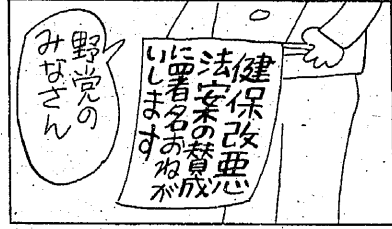 健保改悪
法案の賛成
に署名おねが
いします
野党の
みなさん